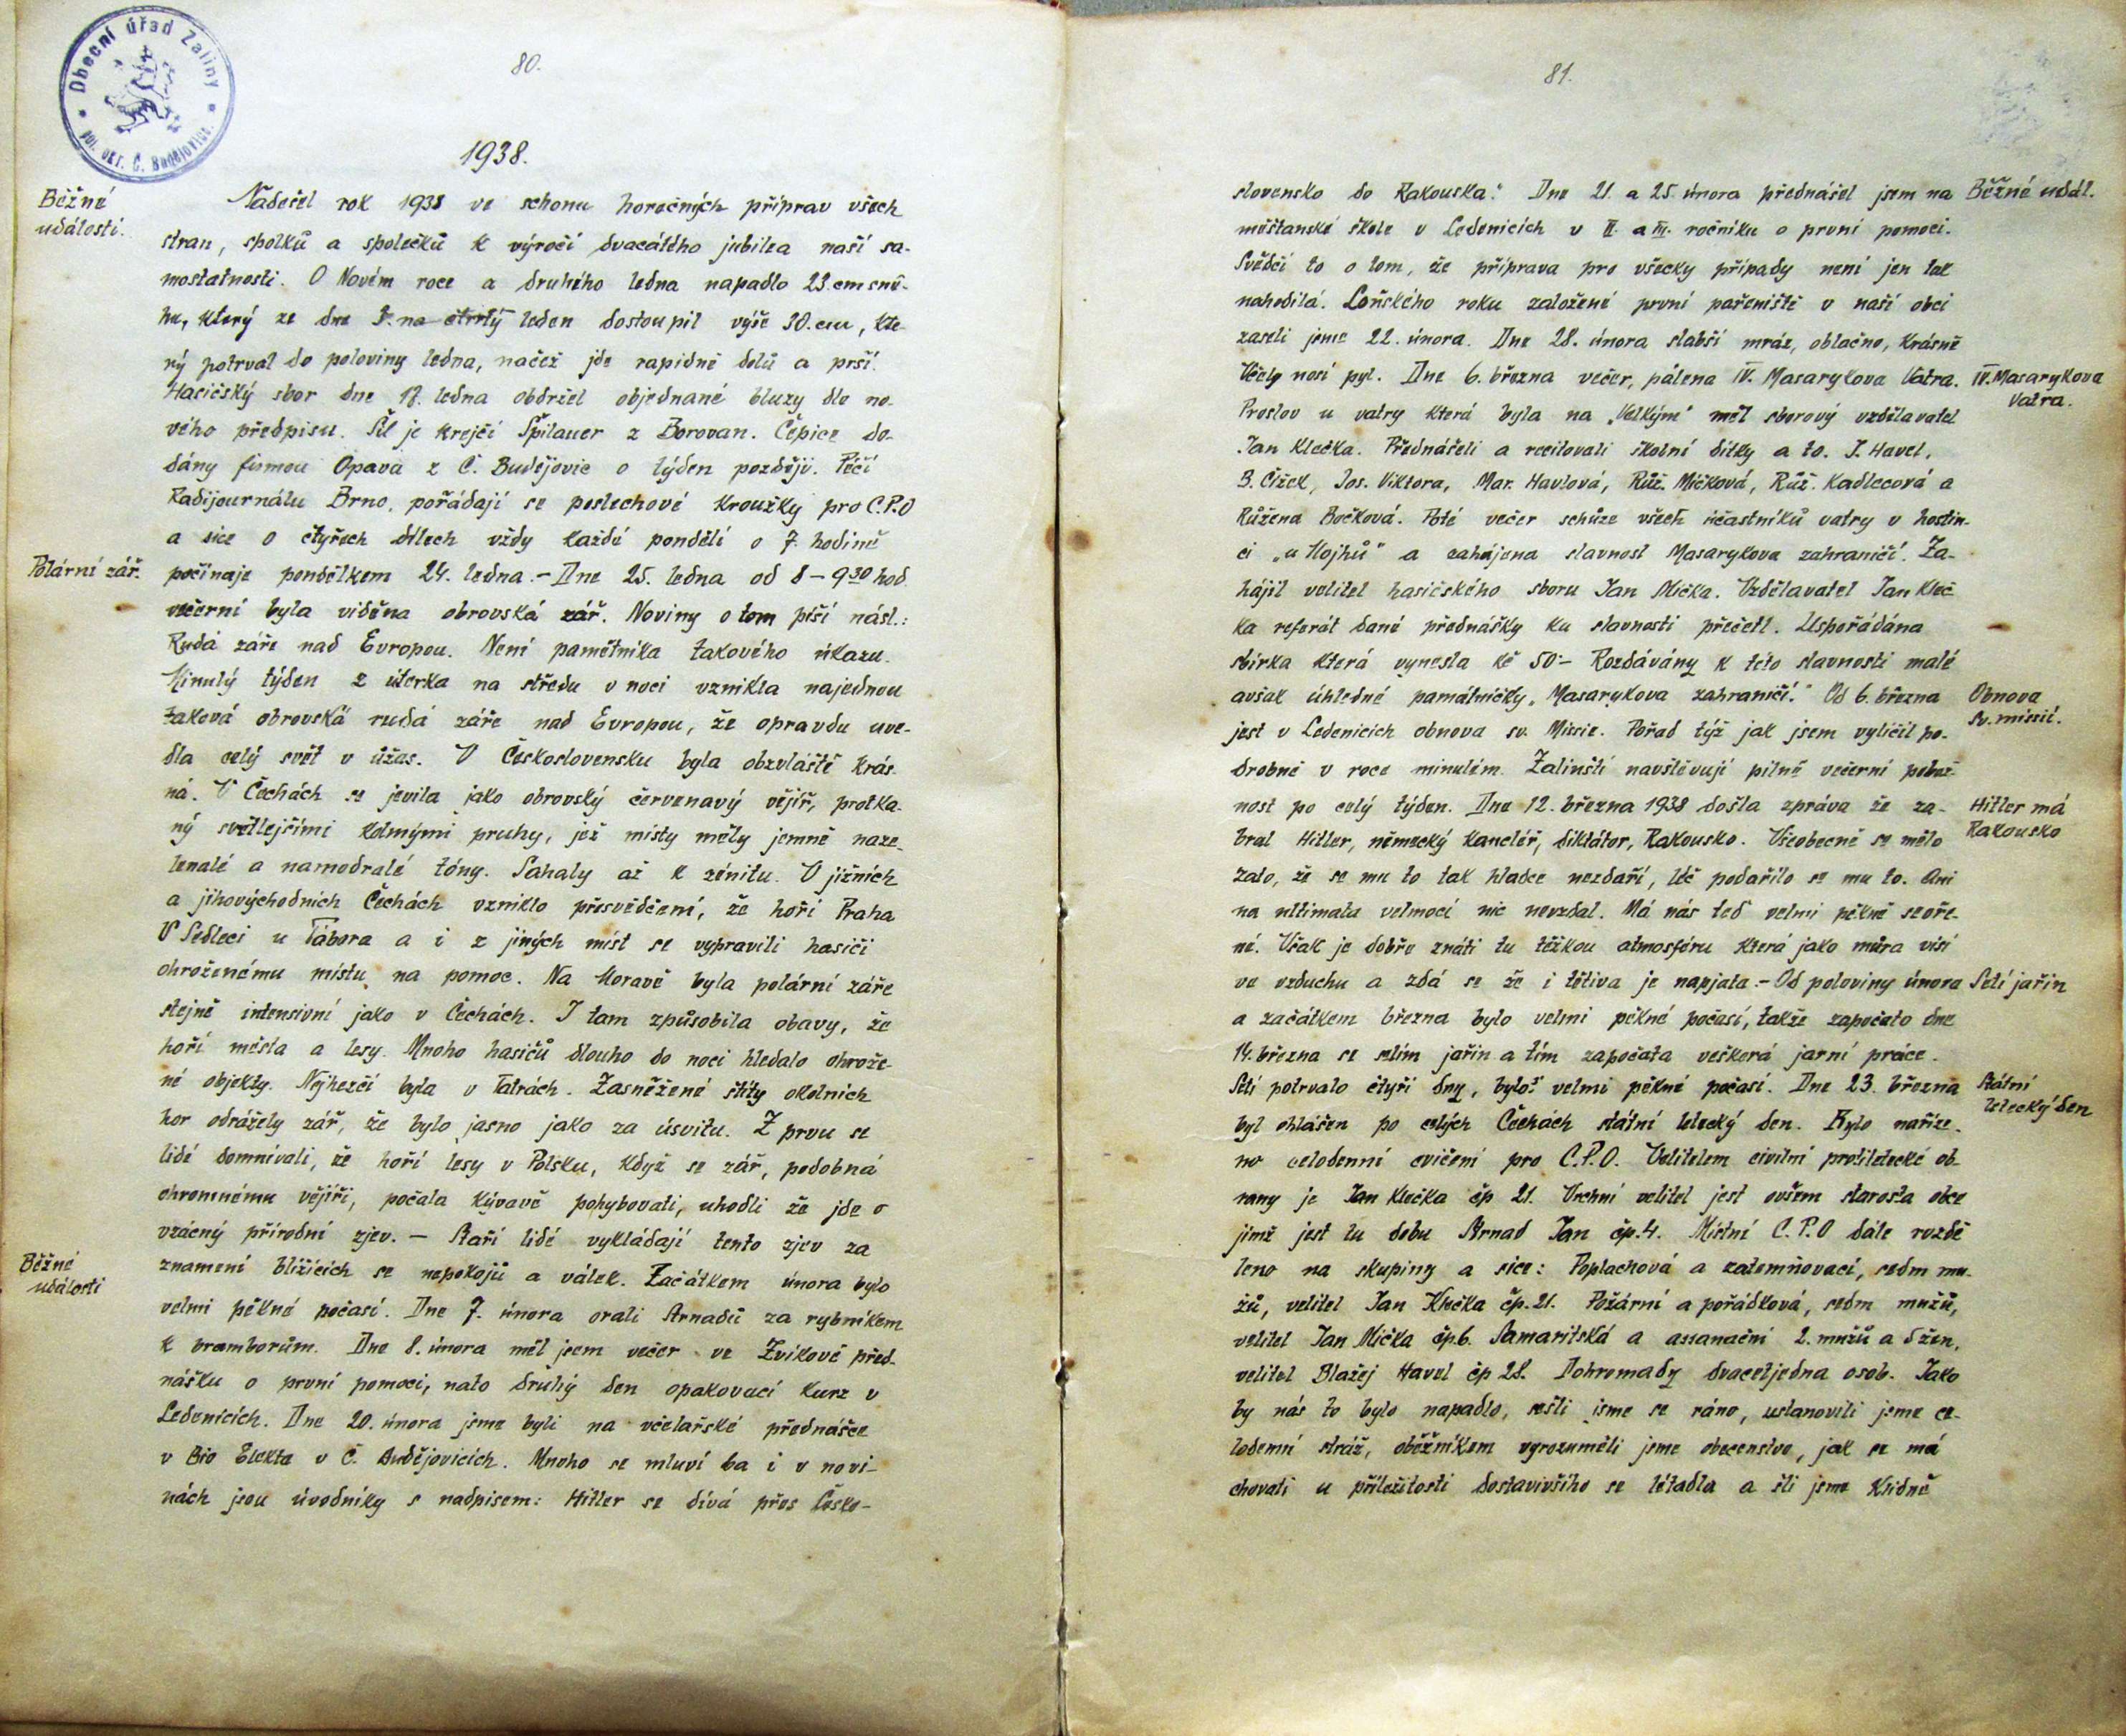 Obecní úřad Zaliny
pol. okr. Č. Budějovice.
80.
1938.
Běžné
události.
Nadešel rok 1938 ve schonu horečných příprav všech
stran, spolků a společků k výročí dvacátého jubilea naší sa-
mostatnosti. O Novém roce a druhého ledna napadlo 23.cm sně-
hu, který ze dne 3. na čtvrtý leden dostoupil výše 30.cm, kte-
rý potrval do poloviny ledna, načež jde rapidně dolů a prší.
Hasičský sbor dne 12. ledna obdržel objednané bluzy dle no-
vého předpisu. Šil je krejčí Špilauer z Borovan. Čepice do-
dány firmou Opava z Č. Budějovic o týden později. Péčí
Radijournálu Brno, pořádají se poslechové kroužky pro C.P.O
a sice o čtyřech dílech vždy každé pondělí o 7. hodině
Polární zář.
počínaje pondělkem 24. ledna.- Dne 25. ledna od 8-9³⁰ hod.
večerní byla viděna obrovská zář. Noviny o tom píší násl.:
Rudá záře nad Evropou. Není pamětníka takového úkazu.
Minulý týden z úterka na středu v noci vznikla najednou
taková obrovská rudá záře nad Evropou, že opravdu uve-
dla celý svět v úžas. V Československu byla obzvláště krás-
ná. V Čechách se jevila jako obrovský červenavý vějíř, protka-
ný světlejšími kolmými pruhy, jež místy měly jemně naze-
lenalé a namodralé tóny. Sahaly až k zénitu. V jižních
a jihovýchodních Čechách vzniklo přesvědčení, že hoří Praha
V Sedleci u Tábora a i z jiných míst se vypravili hasiči
ohroženému místu na pomoc. Na Moravě byla polární záře
stejně intensivní jako v Čechách. I tam způsobila obavy, že
hoří města a lesy. Mnoho hasičů dlouho do noci hledalo ohrože-
né objekty. Nejhezčí byla v Tatrách. Zasněžené štíty okolních
hor odrážely zář, že bylo jasno jako za úsvitu. Z prvu se
lidé domnívali, že hoří lesy v Polsku, když se zář, podobná
ohromnému vějíři, počala kývavě pohybovati, uhodli že jde o
vzácný přírodní zjev. - Staří lidé vykládají tento zjev za
Běžné
události
znamení blížících se nepokojů a válek. Začátkem února bylo
velmi pěkné počasí. Dne 7. února orali Arnadů za rybníkem
k bramborům. Dne 8. února měl jsem večer ve Zvíkově před-
nášku o první pomoci, nato druhý den opakovací kurz v
Ledenicích. Dne 20. února jsme byli na včelařské přednášce
v Bio Elekta v Č. Budějovicích. Mnoho se mluví ba i v novi-
nách jsou úvodníky s nadpisem: Hitler se dívá přes Česko-
81.
slovensko do Rakouska." Dne 21. a 25. února přednášel jsem na
Běžné udál.
měšťanské škole v Ledenicích v II. a III. ročníku o první pomoci.
Svědčí to o tom, že příprava pro všecky případy není jen tak
nahodilá. Loňského roku založené první pařeniště v naší obci
zaseli jsme 22. února. Dne 28. února slabší mráz, oblačno, krásně
Včely nosí pyl. Dne 6. března večer, pálena IV. Masarykova Vatra.
IV. Masarykova
Vatra.
Proslov u vatry která byla na „Velkým" měl sborový vzdělavatel
Jan Klečka. Přednášeli a recitovali školní dítky a to. J. Havel,
B. Čížek, Jos. Viktora, Mar. Havlová, Růž. Mičková, Růž. Kadlecová a
Růžena Bočková. Poté večer schůze všech účastníků vatry v hostin-
ci „u Hojhů" a zahájena slavnost Masarykova zahraničí. Za-
hájil velitel hasičského sboru Jan Mička. Vzdělavatel Jan Kleč-
ka referát dané přednášky ku slavnosti přečetl. Uspořádána
sbírka která vynesla kč 50:- Rozdávány k této slavnosti malé
avšak úhledné památníčky „Masarykova zahraničí." Od 6. března
Obnova
sv. missií.
jest v Ledenicích obnova sv. Missie. Pořad týž jak jsem vylíčil po-
drobně v roce minulém. Žalinští navštěvují pilně večerní pobož-
nost po celý týden. Dne 12. března 1938 došla zpráva že za-
Hitler má
Rakousko
bral Hitler, německý kancléř, diktátor, Rakousko. Všeobecně se mělo
zato, že se mu to tak hladce nezdaří, léč podařilo se mu to. Ani
na ultimata velmocí nic nevzdal. Má nás teď velmi pěkně sevře-
né. Však je dobře znáti tu těžkou atmosféru která jako můra visí
ve vzduchu a zdá se že i tětiva je napjata.- Od poloviny února
Setí jařin
a začátkem března bylo velmi pěkné počasí, takže započato dne
14. března se setím jařin a tím započata veškerá jarní práce.
Setí potrvalo čtyři dny, byloť velmi pěkné počasí. Dne 23. března
Státní
letecký den
byl ohlášen po celých Čechách státní letecký den. Bylo naříze-
no celodenní cvičení pro C.P.O. Velitelem civilní protiletecké ob-
rany je Jan Klečka čp 21. Vrchní velitel jest ovšem starosta obce
jímž jest tu dobu Arnad Jan čp.4. Místní C.P.O dále rozdě-
leno na skupiny a sice: Poplachová a zatemňovací, sedm mu-
žů, velitel Jan Klečka čp.21. Požární a pořádková, sedm mužů,
velitel Jan Mička čp.6. Samaritská a assanační 2. mužů a 5 žen,
velitel Blažej Havel čp 28. Dohromady dvacetjedna osob. Jako
by nás to bylo napadlo, sešli jsme se ráno, ustanovili jsme ce-
lodenní stráž, oběžníkem vyrozuměli jsme obecenstvo, jak se má
chovati u příležitosti dostavivšího se létadla a šli jsme klidně